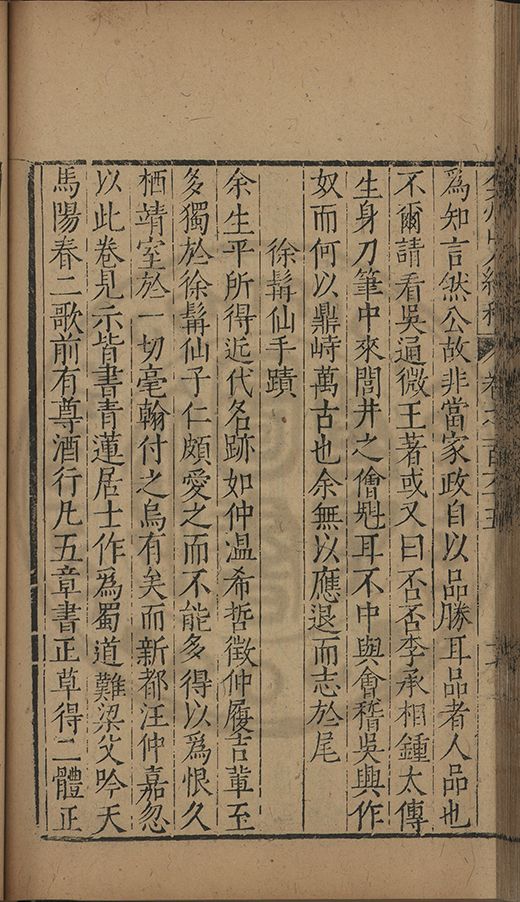 弇州山人續稿 卷之一百六十五
爲知言然公故非當家政自以品勝耳品者人品也
不爾請看吳通微王著或又曰否否李承相鍾太傅
生身刀筆中來閭井之儈魁耳不中與會稽吳興作
奴而何以鼎峙萬古也余無以應退而志於尾
徐髯仙手蹟
余生平所得近代名跡如仲温希哲徵仲履吉輩至
多獨於徐髯仙子仁頗愛之而不能多得以爲恨久
栖靖室於一切毫翰付之烏有矣而新都汪仲嘉忽
以此卷見示皆書青蓮居士作爲蜀道難梁父吟天
馬陽春二歌前有尊酒行凡五章書正草得二體正